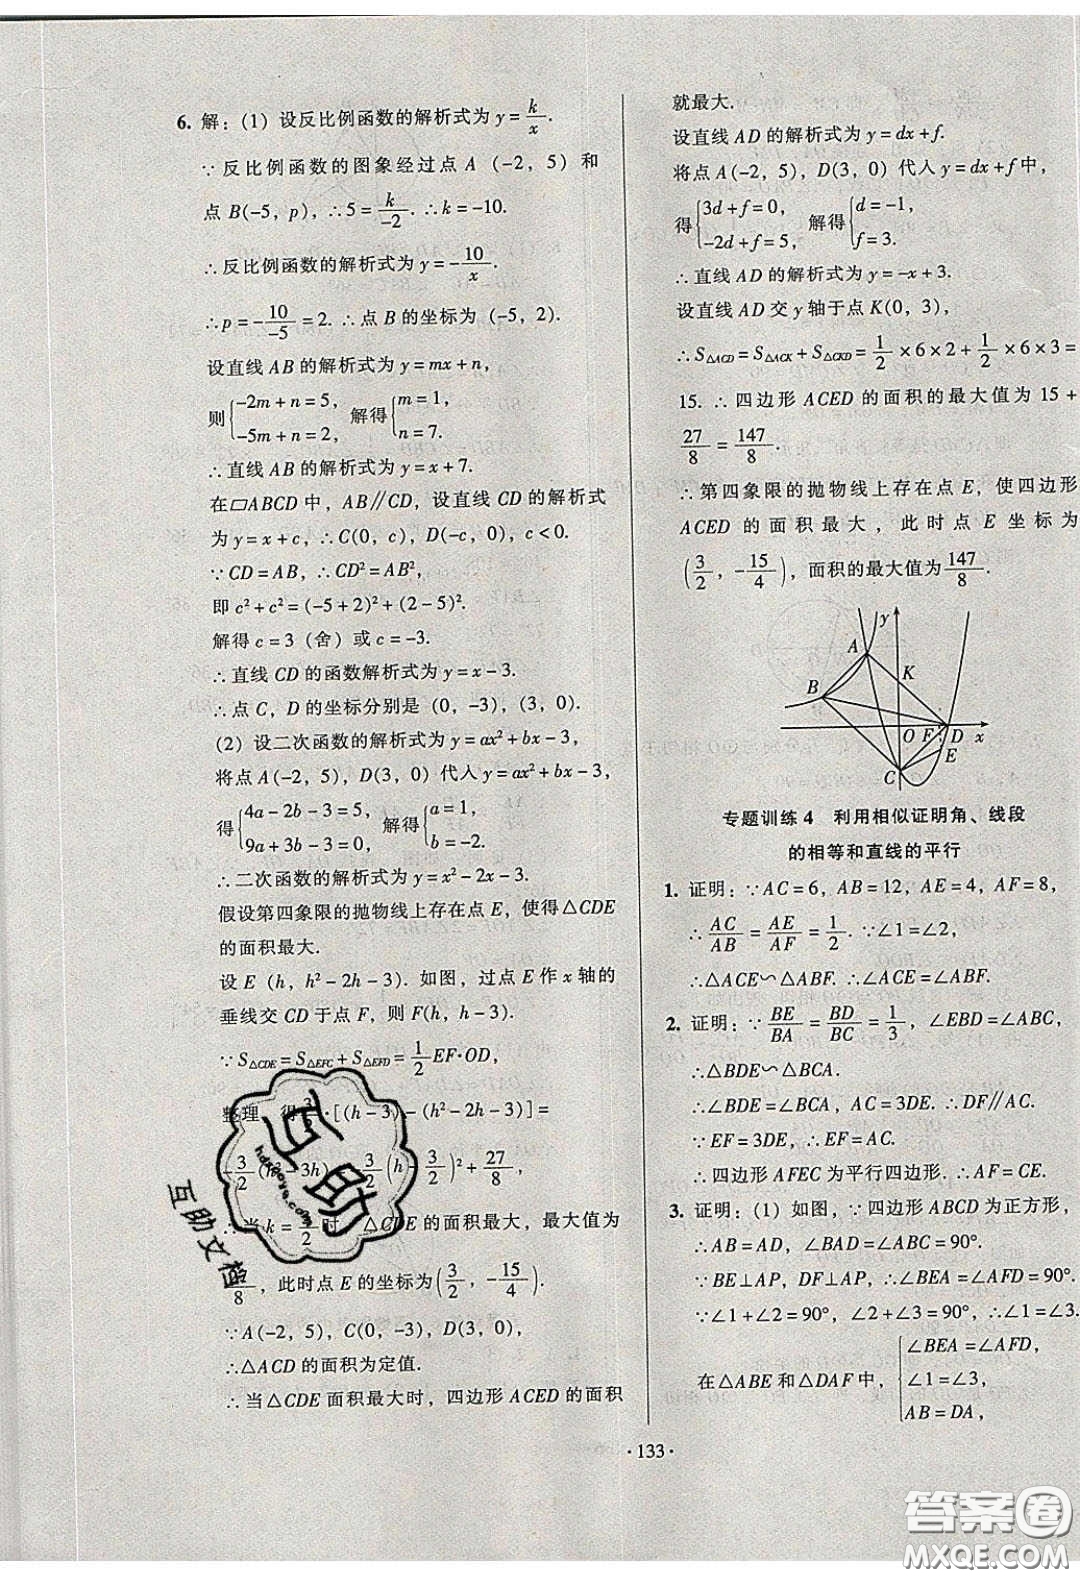 6. 解：(1) 设反比例函数的解析式为 y = k/x.
∵ 反比例函数的图象经过点 A (-2, 5) 和
点 B(-5, p), ∴ 5 = k/-2. ∴ k = -10.
∴ 反比例函数的解析式为 y = -10/x.
∴ p = -10/-5 = 2. ∴ 点 B 的坐标为 (-5, 2).
设直线 AB 的解析式为 y = mx + n,
则 {-2m + n = 5, -5m + n = 2. 解得 {m = 1, n = 7.
∴ 直线 AB 的解析式为 y = x + 7.
在 ▱ABCD 中, AB∥CD, 设直线 CD 的解析式
为 y = x + c, ∴ C(0, c), D(-c, 0), c < 0.
∵ CD = AB, ∴ CD² = AB²,
即 c² + c² = (-5 + 2)² + (2 - 5)².
解得 c = 3 (舍) 或 c = -3.
∴ 直线 CD 的函数解析式为 y = x - 3.
∴ 点 C, D 的坐标分别是 (0, -3), (3, 0).
(2) 设二次函数的解析式为 y = ax² + bx - 3,
将点 A(-2, 5), D(3, 0) 代入 y = ax² + bx - 3,
得 {4a - 2b - 3 = 5, 9a + 3b - 3 = 0. 解得 {a = 1, b = -2.
∴ 二次函数的解析式为 y = x² - 2x - 3.
假设第四象限的抛物线上存在点 E, 使得 △CDE
的面积最大.
设 E (h, h² - 2h - 3). 如图, 过点 E 作 x 轴的
垂线交 CD 于点 F, 则 F(h, h - 3).
∵ S△CDE = S△EFC + S△EFD = 1/2 EF·OD,
整理, 得 3/2 · [(h - 3) - (h² - 2h - 3)] =
-3/2 (h² - 3h) = -3/2 (h - 3/2)² + 27/8,
∴ 当 k = 3/2 时, △CDE 的面积最大, 最大值为
/8, 此时点 E 的坐标为 (3/2, -15/4).
∵ A(-2, 5), C(0, -3), D(3, 0),
∴ △ACD 的面积为定值.
∴ 当 △CDE 面积最大时, 四边形 ACED 的面积
就最大.
设直线 AD 的解析式为 y = dx + f.
将点 A(-2, 5), D(3, 0) 代入 y = dx + f 中,
得 {3d + f = 0, -2d + f = 5, 解得 {d = -1, f = 3.
∴ 直线 AD 的解析式为 y = -x + 3.
设直线 AD 交 y 轴于点 K(0, 3),
∴ S△ACD = S△ACK + S△CKD = 1/2 × 6 × 2 + 1/2 × 6 × 3 =
15. ∴ 四边形 ACED 的面积的最大值为 15 +
27/8 = 147/8.
∴ 第四象限的抛物线上存在点 E, 使四边形
ACED 的面积最大, 此时点 E 坐标为
(3/2, -15/4), 面积的最大值为 147/8.
y
A
K
B
O F D x
E
C
专题训练 4 利用相似证明角、线段
的相等和直线的平行
1. 证明：∵ AC = 6, AB = 12, AE = 4, AF = 8,
∴ AC/AB = AE/AF = 1/2. ∵ ∠1 = ∠2,
∴ △ACE∽△ABF. ∴ ∠ACE = ∠ABF.
2. 证明：∵ BE/BA = BD/BC = 1/3, ∠EBD = ∠ABC,
∴ △BDE∽△BCA.
∴ ∠BDE = ∠BCA, AC = 3DE. ∴ DF∥AC.
∵ EF = 3DE, ∴ EF = AC.
∴ 四边形 AFEC 为平行四边形. ∴ AF = CE.
3. 证明：(1) 如图, ∵ 四边形 ABCD 为正方形,
∴ AB = AD, ∠BAD = ∠ABC = 90°.
∵ BE⊥AP, DF⊥AP, ∴ ∠BEA = ∠AFD = 90°.
∵ ∠1 + ∠2 = 90°, ∠2 + ∠3 = 90°, ∴ ∠1 = ∠3.
在 △ABE 和 △DAF 中, {∠BEA = ∠AFD, ∠1 = ∠3, AB = DA,
· 133 ·
互助
hdzuoye.com
互助文档
答案圈
MXQE.COM